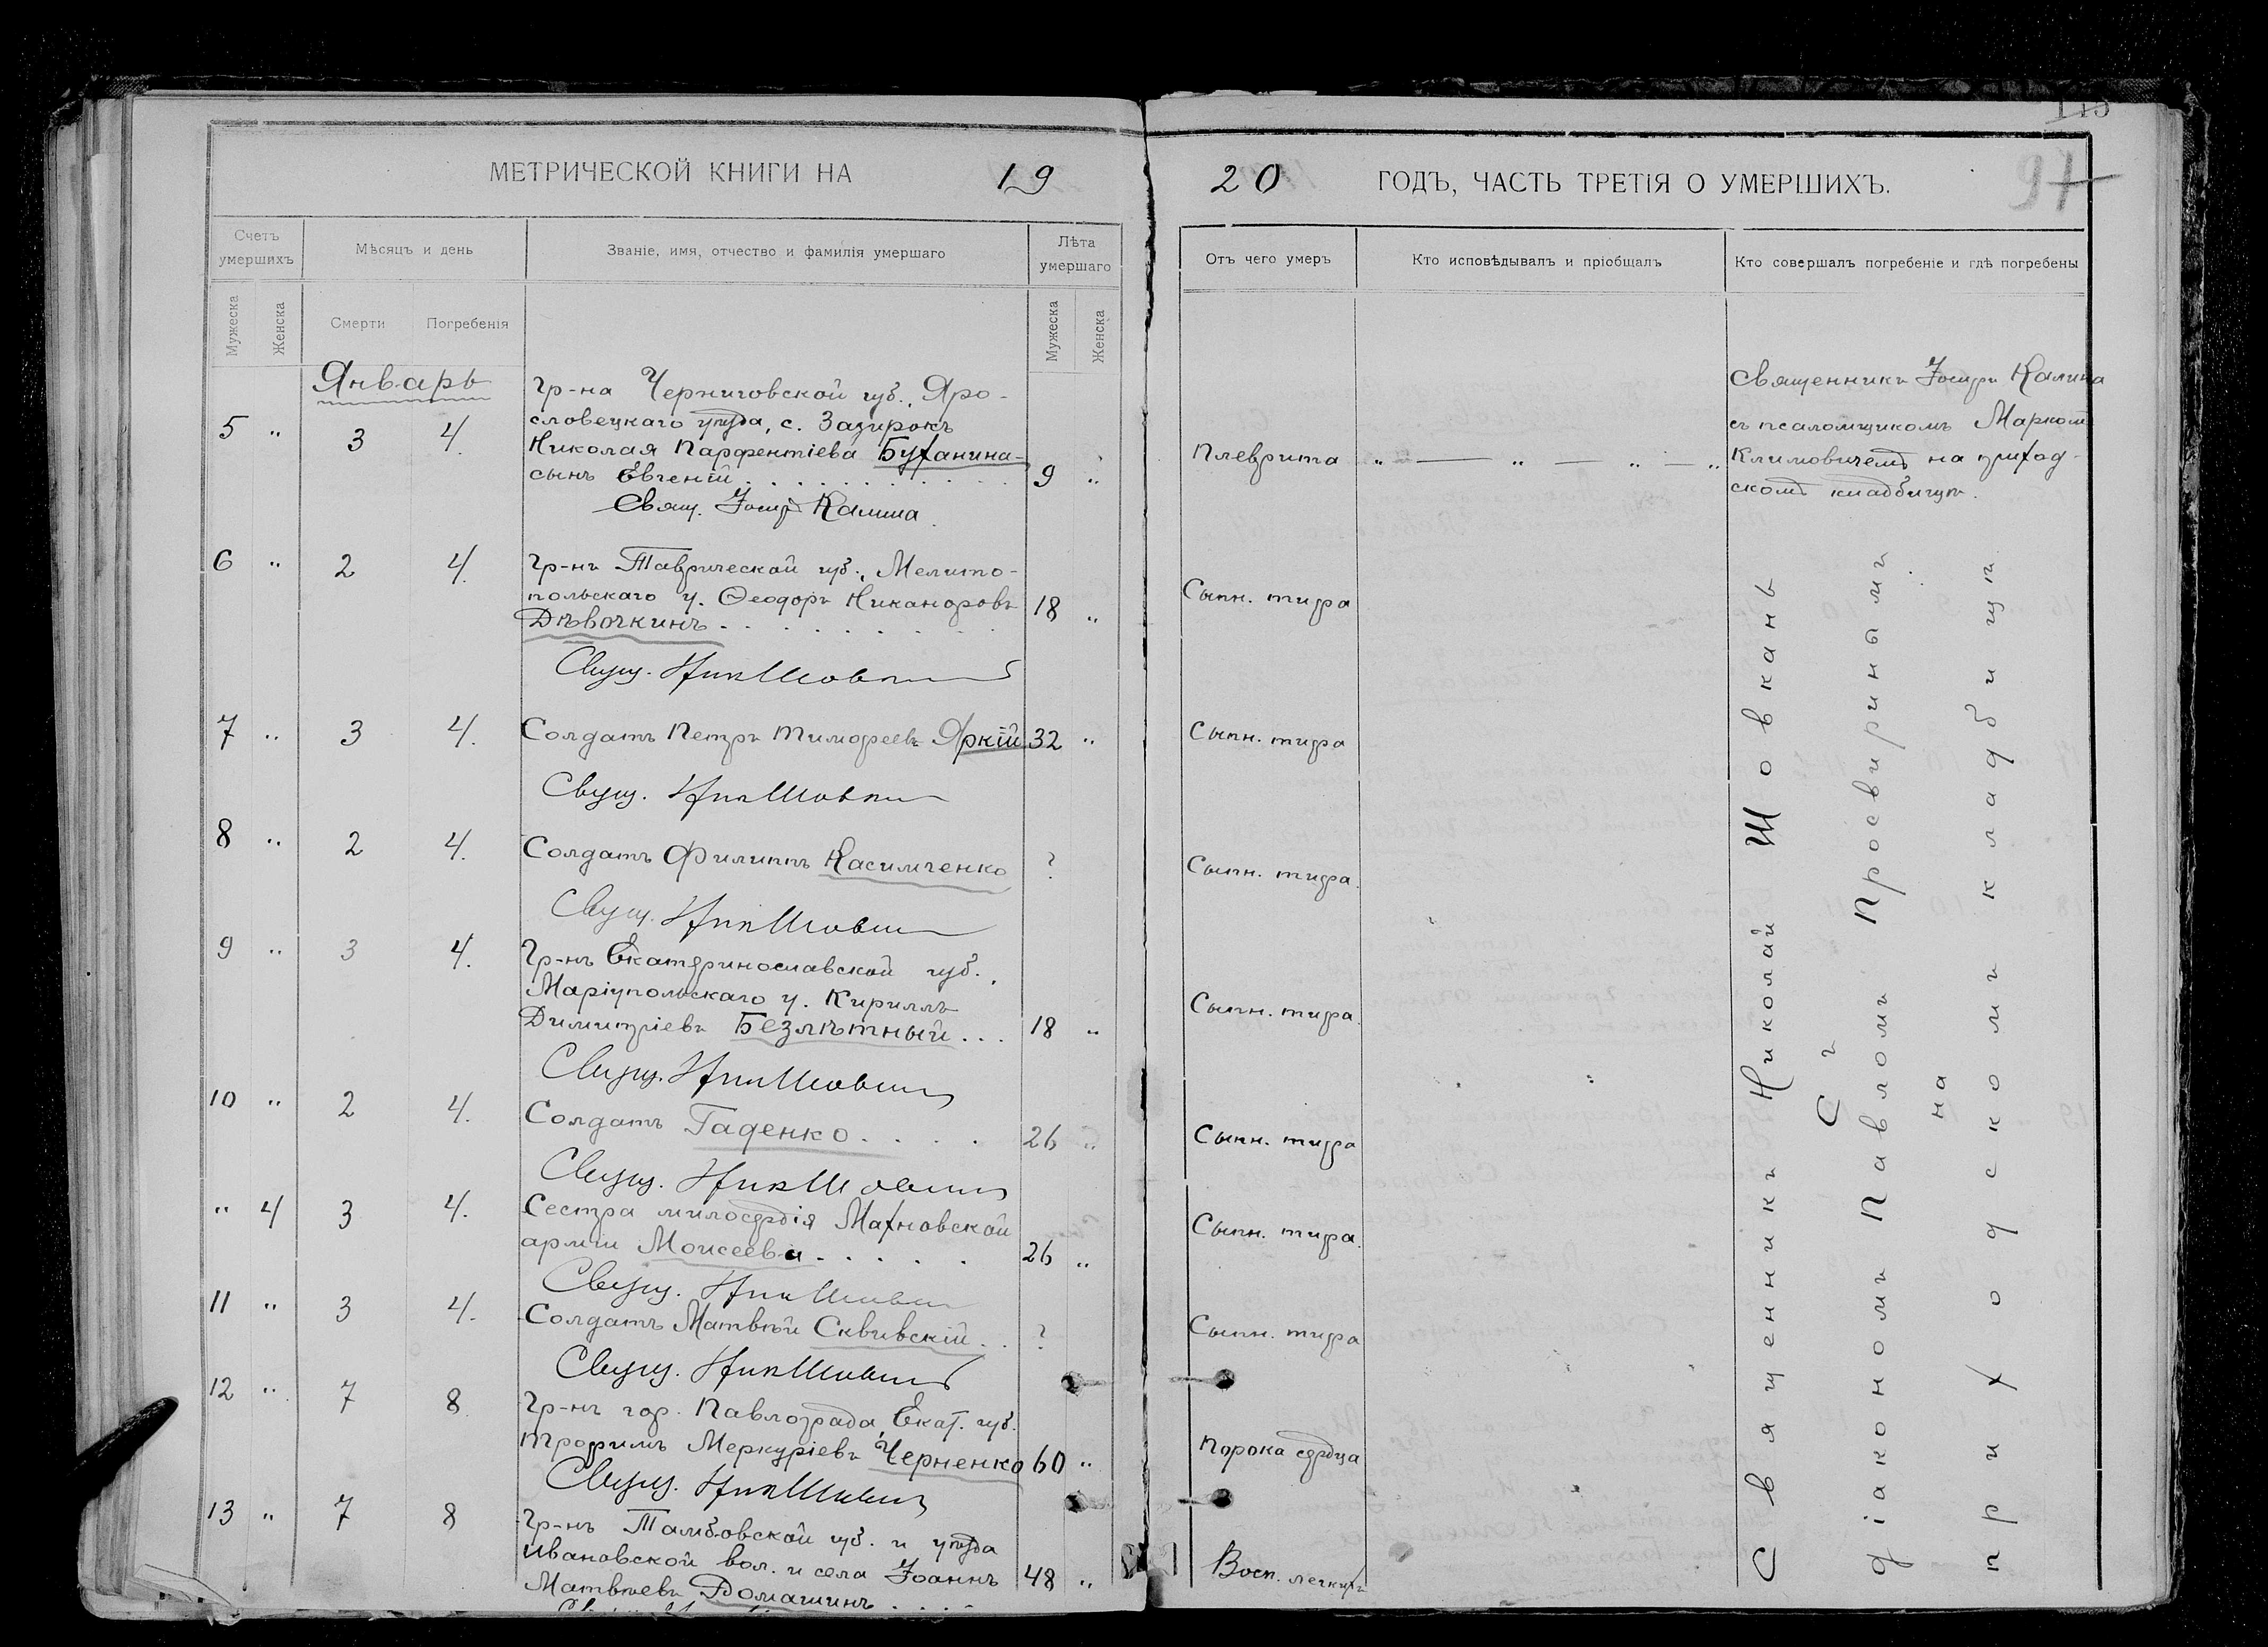 115
МЕТРИЧЕСКОЙ КНИГИ НА 19
20 ГОДЪ, ЧАСТЬ ТРЕТІЯ О УМЕРШИХЪ.
97
Счетъ умершихъ
Мѣсяцъ и день
Званіе, имя, отчество и фамилія умершаго
Лѣта умершаго
Отъ чего умеръ
Кто исповѣдывалъ и пріобщалъ
Кто совершалъ погребеніе и гдѣ погребены
Мужеска
Женска
Смерти
Погребенія
Мужеска
Женска
Январь
5 " 3 4.
гр-на Черниговской губ., Яро-
словецкаго уѣзда, с. Зазирокъ
Николая Парфентіева Буханина-
сынъ Евгеній 9 "
Свящ. Іосифъ Калина
Плеврита " — " — " — "
Священникъ Іосифъ Калина
съ псаломщикомъ Маркомъ
Климовичемъ на приход-
скомъ кладбищѣ.
6 " 2 4.
гр-нъ Таврической губ., Мелито-
польскаго у. Ѳеодоръ Никаноровъ 18 "
Дѣвочкинъ
Свящ. Ник Шовкань
Сыпн. тифа
7 " 3 4. Солдатъ Петръ Тимофеевъ Яркій 32 "
Свящ. Ник Шовкань
Сыпн. тифа
8 " 2 4. Солдатъ Филиппъ Касимченко ?
Свящ. Ник Шовкань
Сыпн. тифа.
9 " 3 4. Гр-нъ Екатеринославской губ.,
Маріупольскаго у. Кириллъ
Димитріевъ Безлѣтный... 18 "
Свящ. Ник Шовкань
Сыпн. тифа.
10 " 2 4. Солдатъ Гаденко.... 26 "
Свящ. Ник Шовкань
Сыпн. тифа
" 4 3 4. Сестра милосердія Махновской
арміи Моисеева..... 26 "
Свящ. Ник Шовкань
Сыпн. тифа.
11 " 3 4. Солдатъ Матвѣй Сквивскій.. ?
Свящ. Ник Шовкань
Сыпн. тифа
12 " 7 8. Гр-нъ гор. Павлограда, Екат. губ.
Трофимъ Меркуріевъ Черненко 60 "
Свящ. Ник Шовкань
Порока сердца
13 " 7 8 Гр-нъ Тамбовской губ. и уѣзда
Ивановской вол. и села Іоаннъ 48 "
Матвѣевъ Домашинъ....
Восп. легкихъ
Священникъ Николай Шовкань
Съ
діакономъ Павломъ Просвиринымъ
на
приходскомъ кладбищѣ